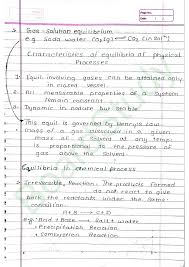 Date :
3 Gas - Solution equilibrium
e.g. soda water CO2(g) ⇌ CO2 (in soln)
Characteristics of equilibria of physical
Processes
1. Equil involving gases can be attained only
in closed vessel
2. All measurable properties of a system
remain constant
3. Dynamic in nature but stable
This equil is governed by Henry's law
mass of a gas dissolved in a given
mass of a solvent at any temp
is proportional to the pressure of
gas above the solvent
Equilibria Chemical process
Irreversible Reaction The products formed
do not react to give
back the reactants under the same
condition
A + B → C + D
e.g. Acid + Base → Salt + water
• Precipitation Reaction
• Combustion Reaction